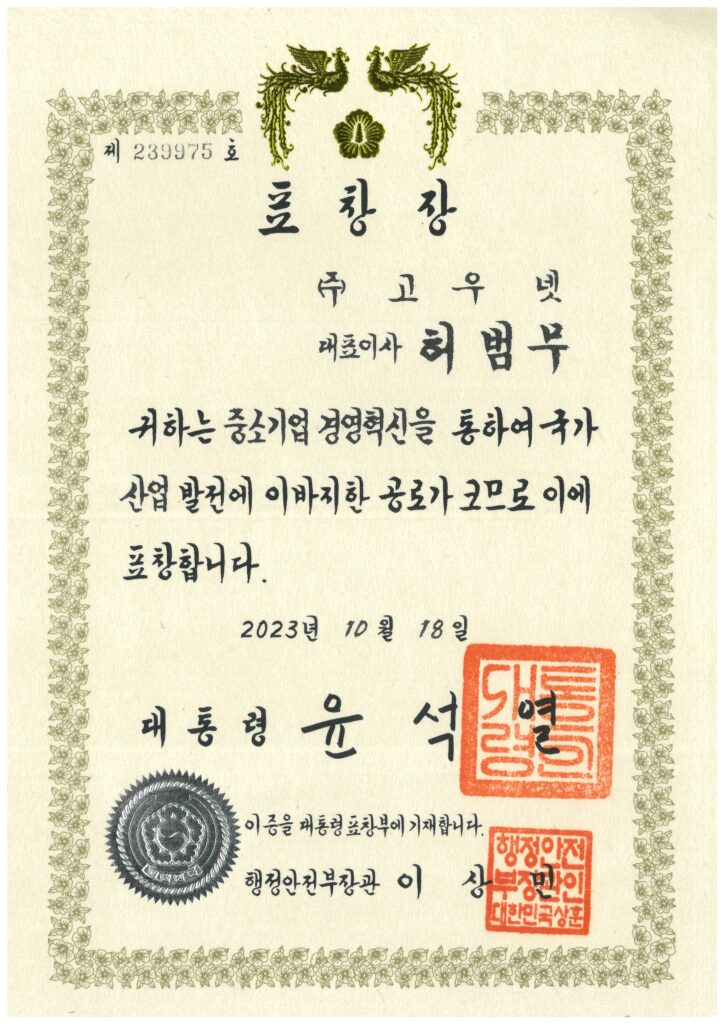 제 239975 호
표창장
㈜ 고우넷
대표이사 허범무
귀하는 중소기업 경영혁신을 통하여 국가
산업 발전에 이바지한 공로가 크므로 이에
표창합니다.
2023년 10월 18일
대통령 윤석열
대통령인
이 증을 대통령표창부에 기재합니다.
행정안전부장관 이상민
행정안전
부장관인
대한민국상훈